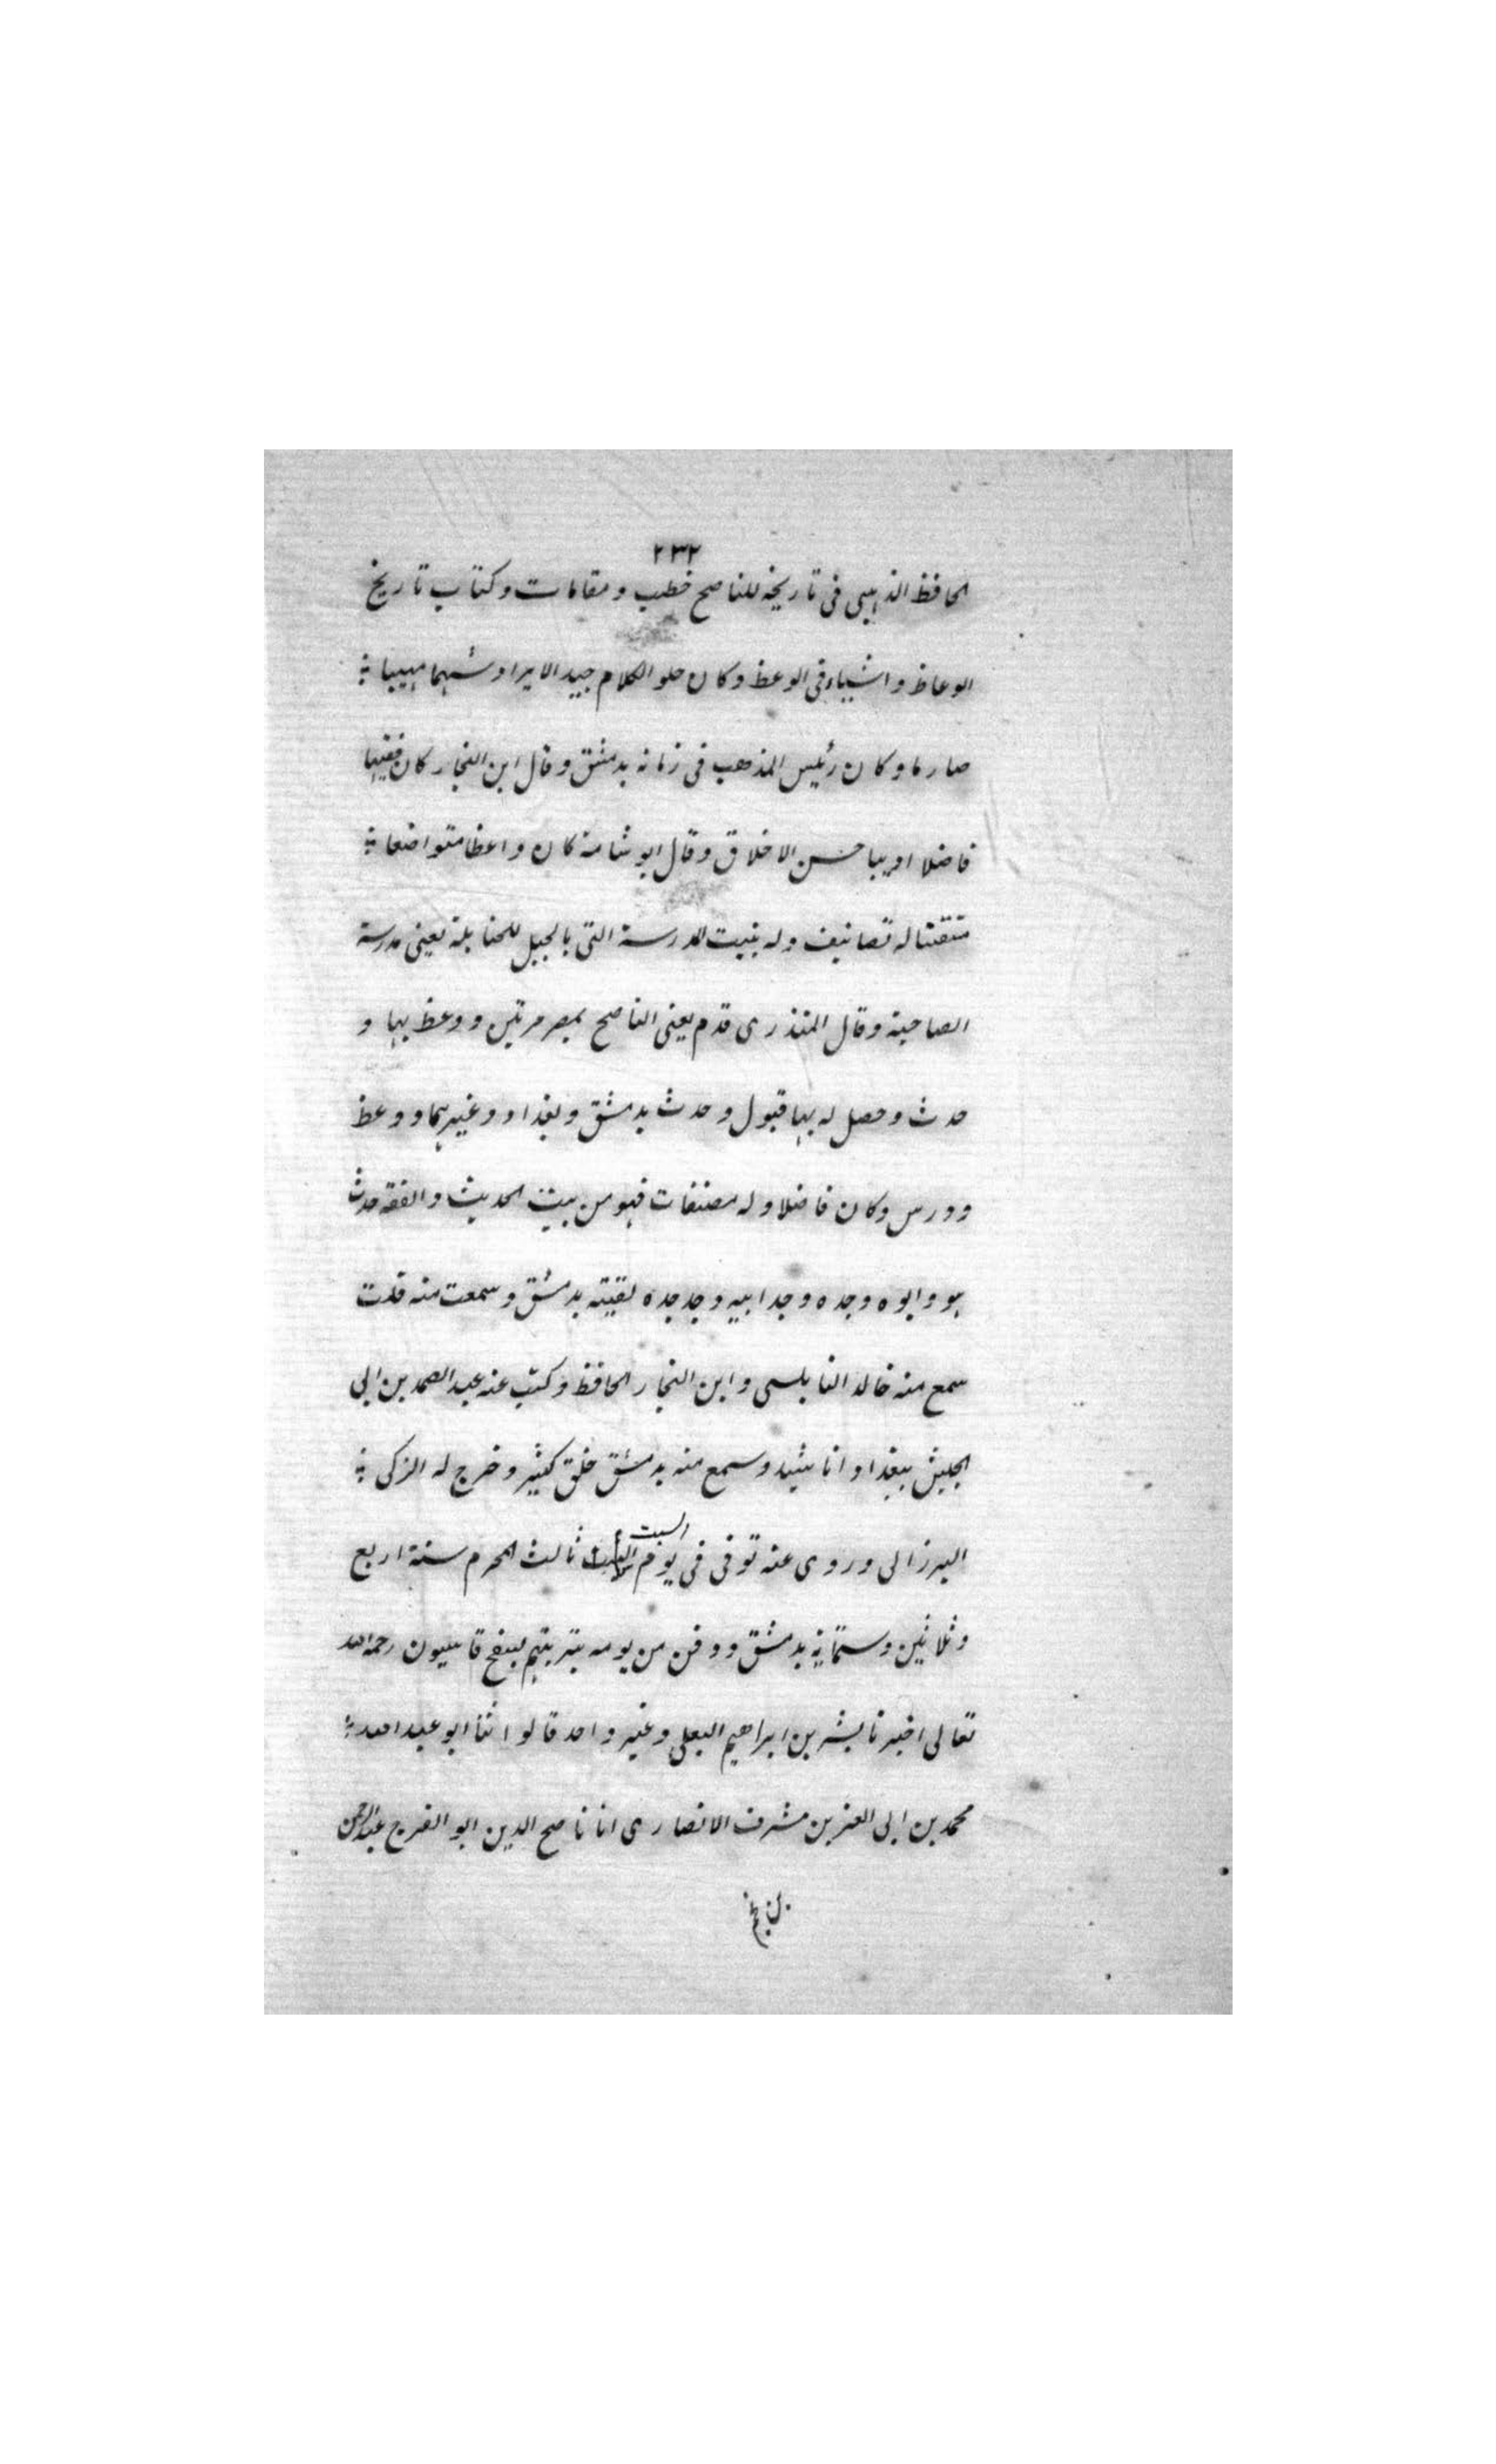 ٢٣٢
الحافظ الذهبى فى تاريخه للناصح خطب و مقامات وكتاب تاريخ
الوعاظ واشياء فى الوعظ وكان حلو الكلام جيد الايراد شهما مهيبا
صارما وكان رئيس المذهب فى زمانه بدمشق وقال ابن النجار كان فقيها
فاضلا اديبا حسن الاخلاق وقال ابو شامة كان واعظا متواضعا
متقننا له تصانيف وله بنيت المدرسة التى بالجبل للحنابلة يعنى مدرسة
الصاحبة وقال المنذرى قدم يعنى الناصح بمصر مرتين ووعظ بها و
حدث وحصل له بها قبول وحدث بدمشق وبغداد وغيرهما ووعظ
ودرس وكان فاضلا وله مصنفات فهو من بيت الحديث والفقه حدث
هو وابوه وجده وجد ابيه وجد جده لقيته بدمشق وسمعت منه قلت
سمع منه خالد النابلسى وابن النجار الحافظ وكتب عنه عبد الصمد بن ابى
الجيش ببغداد اناشيد وسمع منه بدمشق خلق كثير وخرج له الزكى
البرزالى وروى عنه توفى فى يوم السبت ثالث المحرم سنة اربع
وثلاثين وستمائة بدمشق ودفن من يومه بتربتهم بسفح قاسيون رحمه الله
تعالى اخبرنا بشر بن ابراهيم البعلى وغير واحد قالوا انبا ابو عبد الله
محمد بن ابى العز بن مشرف الانصارى انا ناصح الدين ابو الفرج عبد الرحمن
بن نجم